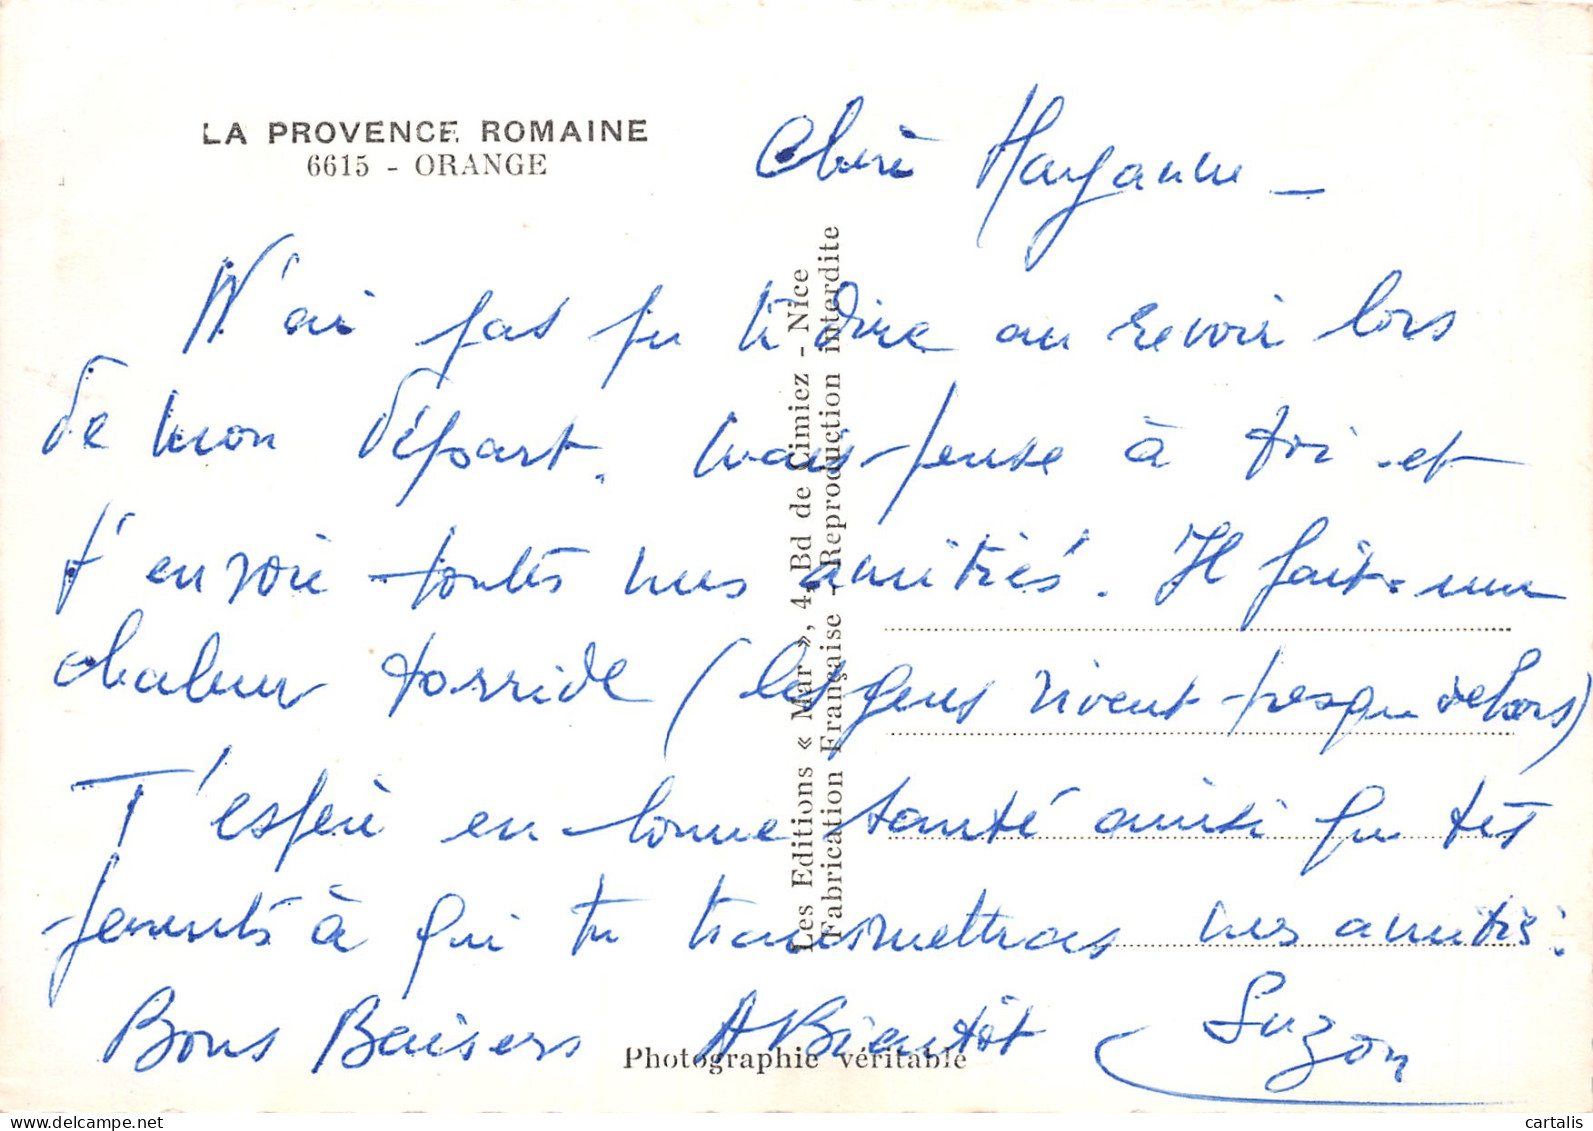 LA PROVENCE ROMAINE
6615 - ORANGE
Chère
N'ai pas pu te dire au revoir lors
de mon départ. Mais pense à toi et
t'envoie toutes mes amitiés. Il fait une
chaleur torride (les gens vivent presque dehors)
T'espère en bonne santé ainsi que tes
parents à qui tu transmettras mes amitiés.
Bons Baisers A Bientôt Suzon
Les Editions « Mar », 4, Bd de Cimiez - Nice
Fabrication Française - Reproduction interdite
Photographie véritable
cartalis